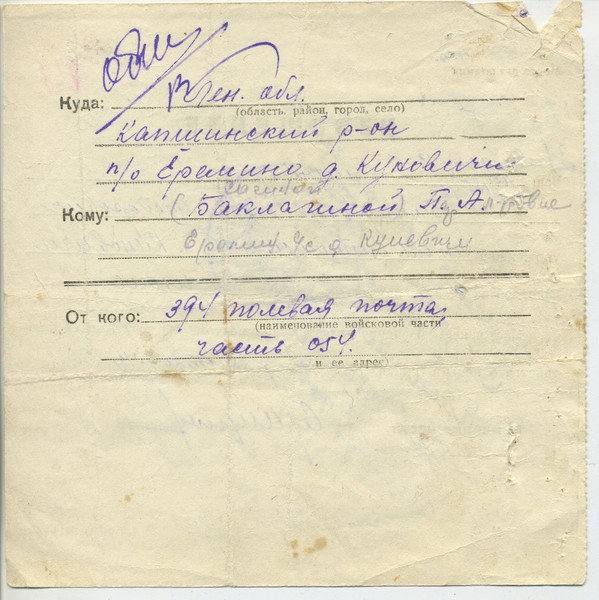 Куда: Лен. обл.
(область, район, город, село)
Капшинский р-он
п/о Еремино д. Куковичи
Кому: (Баклагиной) П. А.
Еремин с/с д. Куневичи
От кого: 394 полевая почта,
(наименование войсковой части
часть 054.
и ее адрес)